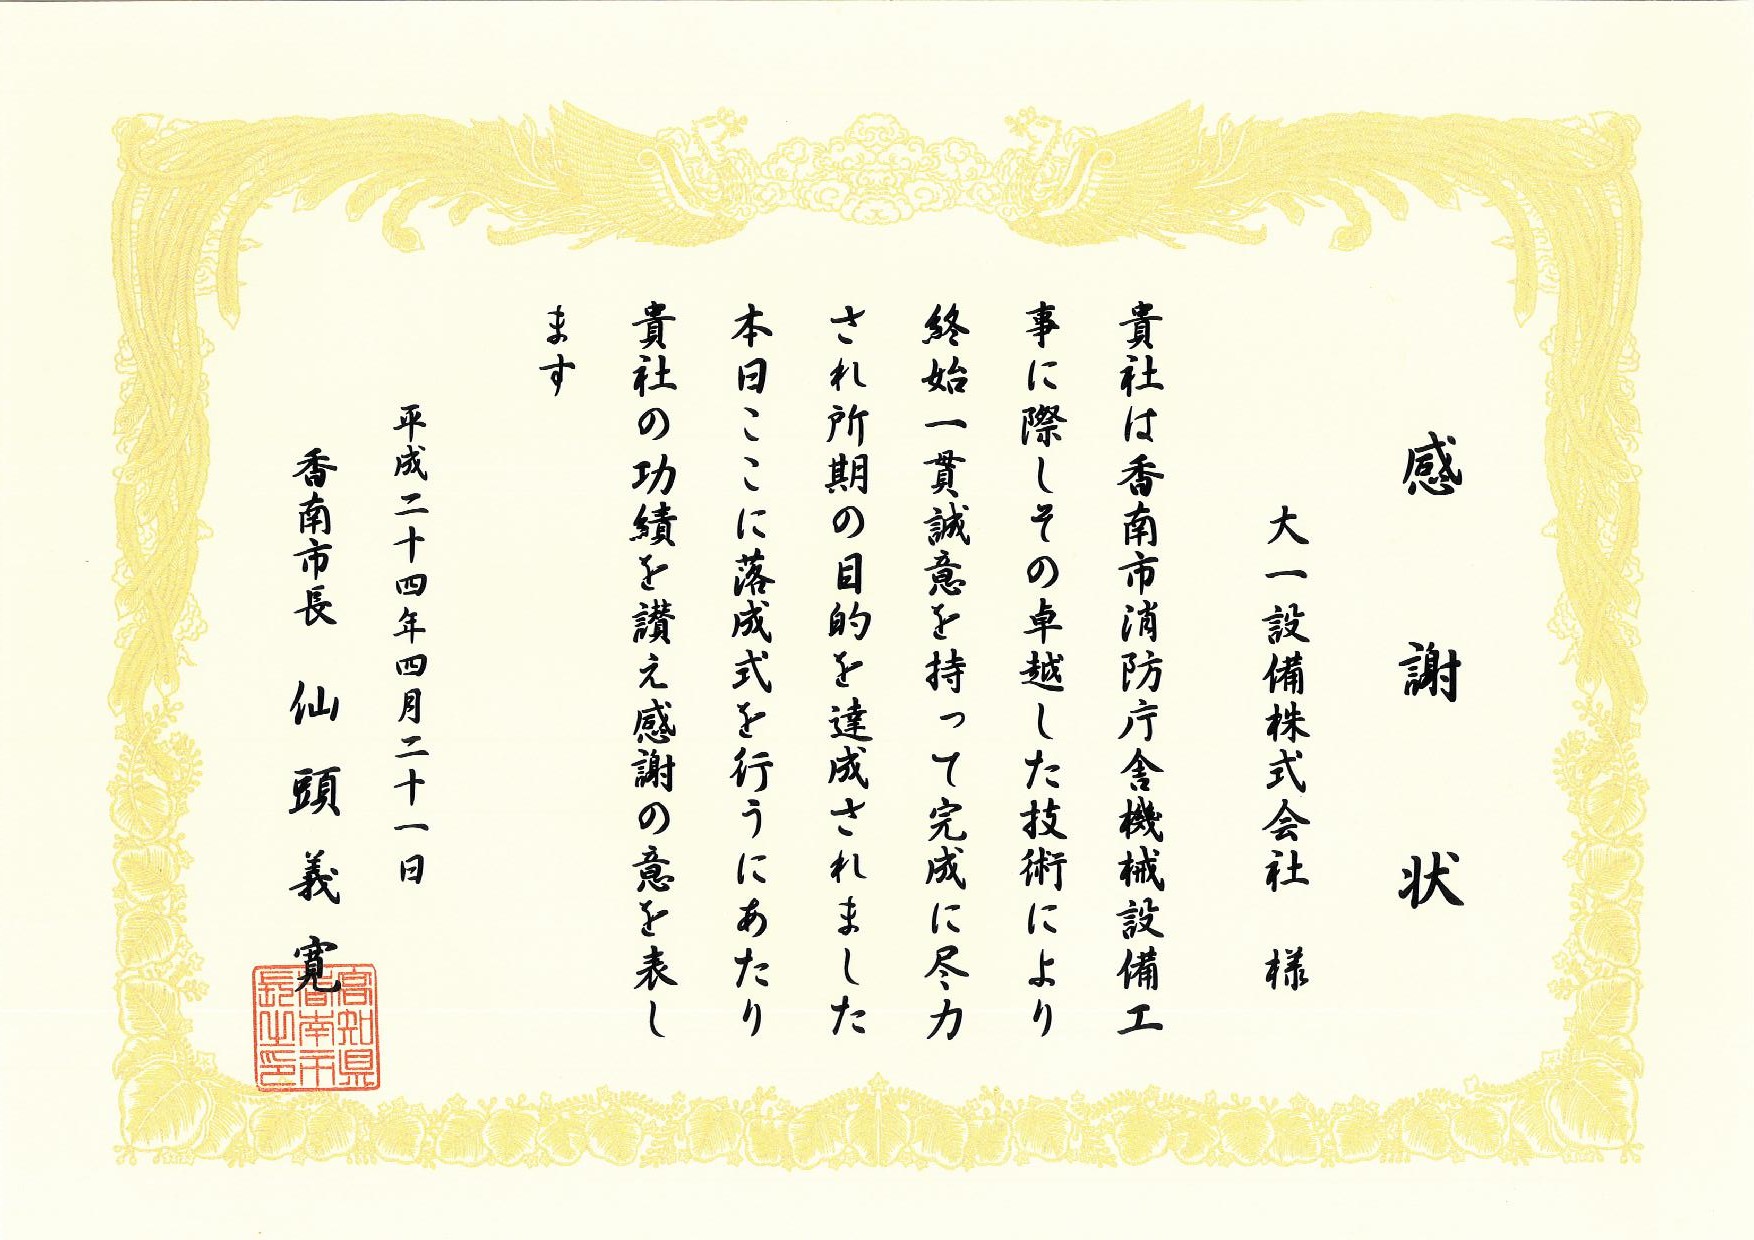 感謝状
大一設備株式会社 様
貴社は香南市消防庁舎機械設備工
事に際しその卓越した技術により
終始一貫誠意を持って完成に尽力
され所期の目的を達成されました
本日ここに落成式を行うにあたり
貴社の功績を讃え感謝の意を表し
ます
平成二十四年四月二十一日
香南市長 仙頭義寛
高知県
香南市
長之印